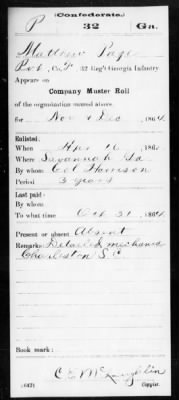 (Confederate.)
P 32 Ga.
Matthew Page
Pvt, Co. F, 32 Reg't Georgia Infantry.
Appears on
Company Muster Roll
of the organization named above,
for Nov & Dec, 1864.
Enlisted:
When 16, 186
Where Savannah Ga
By whom Col Harrison
Period 3 years
Last paid:
By whom
To what time Oct 31, 1864.
Present or absent Absent
Remarks: Detailed mechanic
Charleston S.C.
Book mark:
(642)
C E McLaughlin
Copyist.